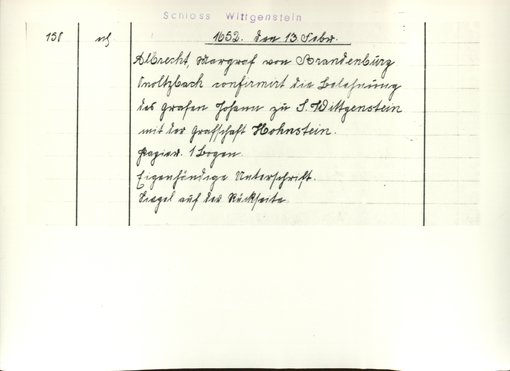 Schloss Wittgenstein
138 1652. den 13. Febr.
Albrecht, Margraf von Brandenburg
Onoltzbach confirmirt die Belehnung
des Grafen Johann zu S. Wittgenstein
mit der Grafschaft Hohnstein.
Papier. 1 Bogen.
Eigenhändige Unterschrift.
Siegel auf der Rückseite